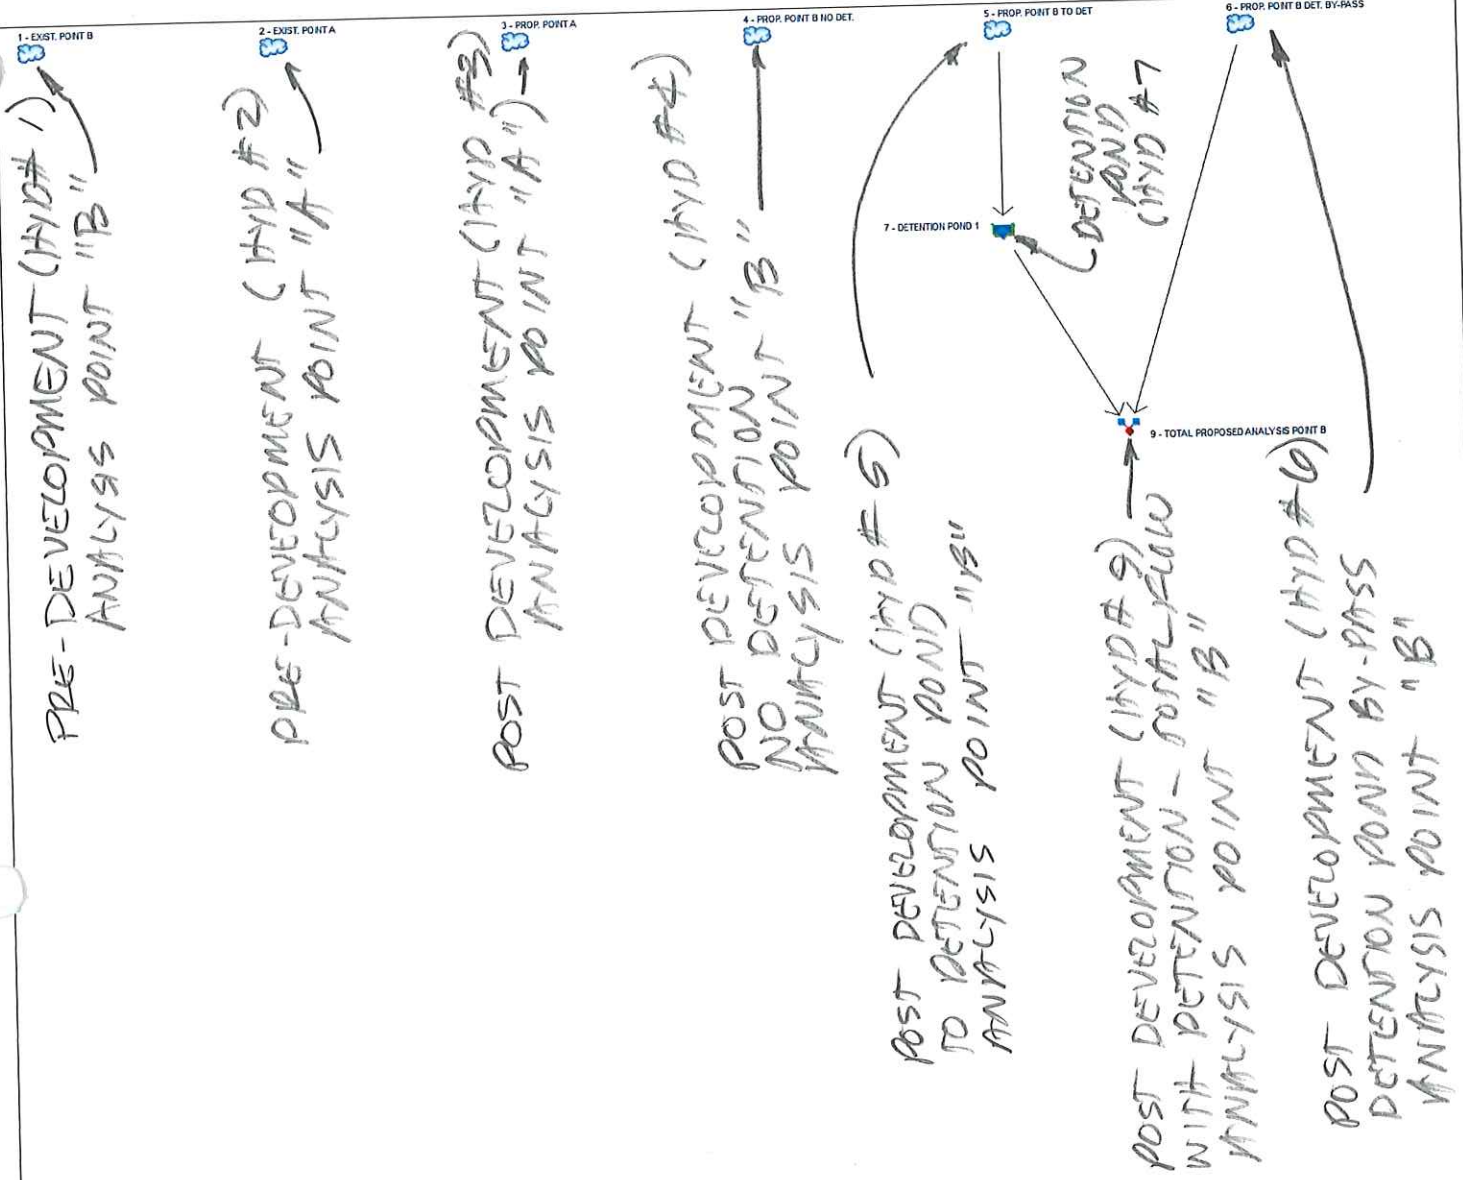 1 - EXIST. POINT B
2 - EXIST. POINT A
3 - PROP. POINT A
4 - PROP. POINT B NO DET.
5 - PROP. POINT B TO DET
6 - PROP. POINT B DET. BY-PASS
7 - DETENTION POND 1
9 - TOTAL PROPOSED ANALYSIS POINT B
PRE-DEVELOPMENT (HYD# 1)
ANALYSIS POINT "B"
PRE-DEVEOPMENT (HYD #2)
ANALYSIS POINT "A"
POST DEVELOPMENT (HYD #3)
ANALYSIS POINT "A")
POST DEVELOPMENT (HYD #4)
NO DETENTION
ANALYSIS POINT "B"
POST DEVELOPMENT (HYD# 5)
TO DETENTION POND
ANALYSIS POINT "B"
DETENTION
POND
(HYD #7
POST DEVELOPMENT (HYD# 9)
WITH DETENTION - TOTAL FLOW
ANALYSIS POINT "B"
POST DEVELOPMENT (HYD #6)
DETENTION POND BY-PASS
ANALYSIS POINT "B"